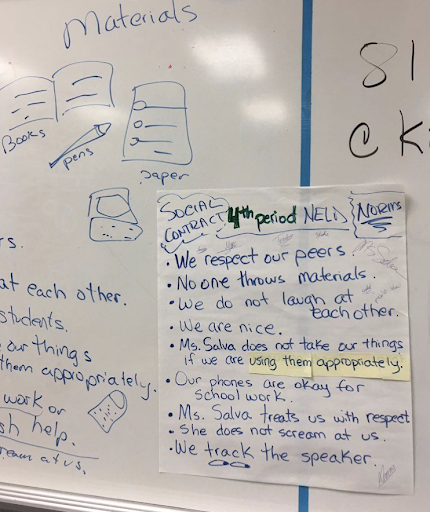 Materials
Books
pens
paper
81
@ K
rs.
at each other.
students.
our things
them appropriately.
work or
sh help.
ream at us.
SOCIAL
CONTRACT
4th period NELD
NORMS
• We respect our peers.
• No one throws materials.
• We do not laugh at
each other.
• We are nice.
• Ms. Salva does not take our things
if we are using them appropriately.
• Our phones are okay for
school work.
• Ms. Salva treats us with respect
• She does not scream at us.
• We track the speaker.